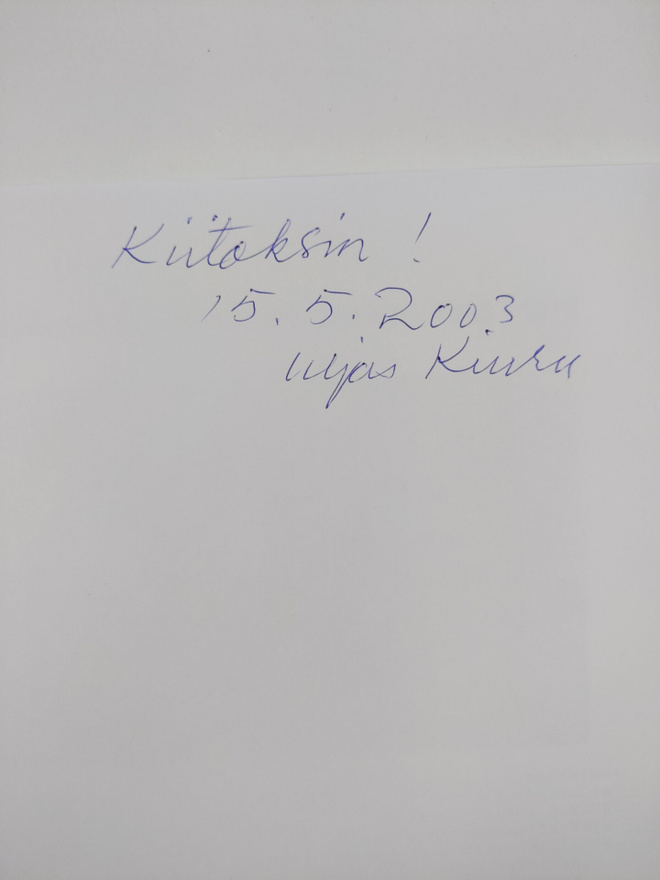 Kiitoksin !
15.5.2003
Urjas Kiuru